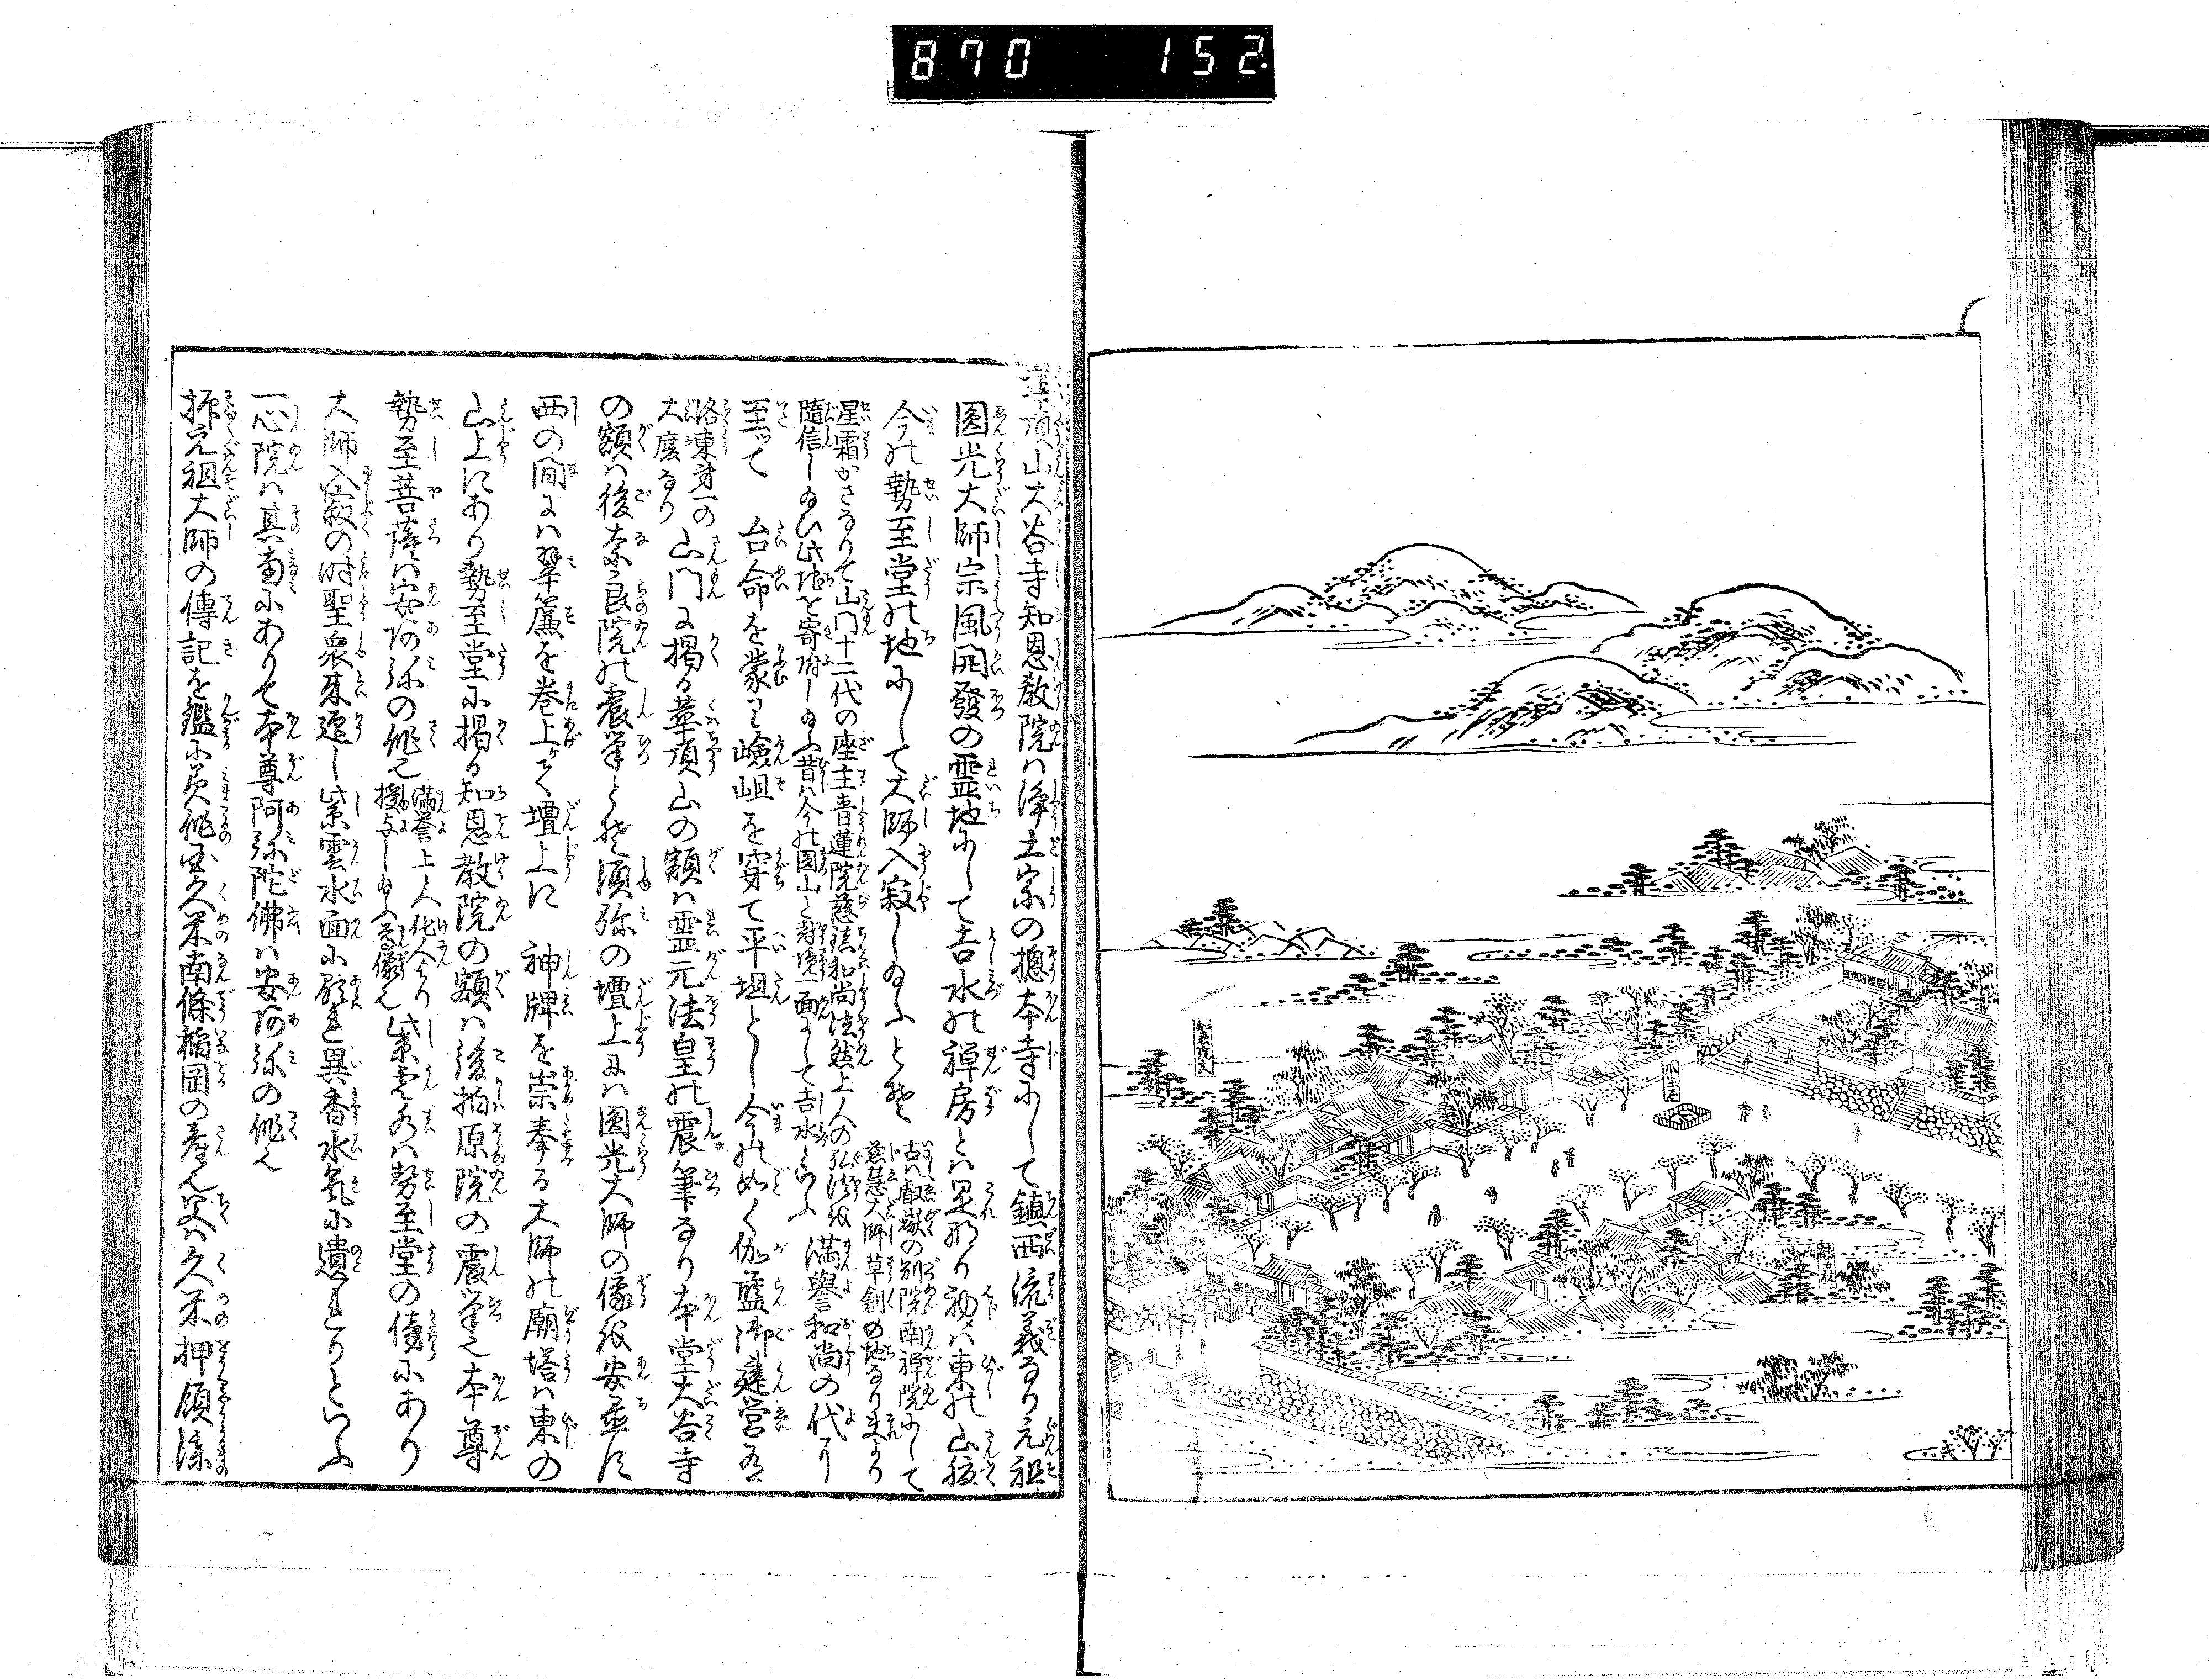 870 152
華頂山大谷寺知恩教院は浄土宗の揔本寺にして鎮西流義なり元祖
圓光大師宗風開發の霊地にして吉水の禅房とは是なり初は東の山腹
今の勢至堂の地にして大師入寂し給ふとぞ
古は叡嶽の別院南禅院にして
慈慧大師草創の地なり夫より
星霜かさなりて山門十二代の座主青蓮院慈鎮和尚法然上人の弘法を
隨信し給ひ此地を寄附し給ふ昔は今の圓山と封境一面にして吉水といふ
満誉和尚の代に
至って 台命を蒙り嶮岨を穿て平坦とし今の如く伽藍御建営有
洛東第一の
大廈なり
山門に掲る華頂山の額は霊元法皇の震筆なり本堂大谷寺
の額は後奈良院の震筆とぞ須弥の壇上には圓光大師の像を安置に
西の間には翠簾を巻上て壇上に 神牌を崇奉る大師の廟塔は東の
山上にあり勢至堂に掲る知恩教院の額は後柏原院の震筆也本尊
勢至菩薩は安阿弥の作也
満誉上人化人より
授与し給ふ尊像也
紫雲水は勢至堂の傍にあり
大師入寂の時聖衆来迎し紫雲水面に影じ異香水氣に遺れりといふ
一心院は其南にありて本尊阿弥陀佛は安阿弥の作也
抑元祖大師の傳記を鑑に美作国久米南條稲岡の産也父は久米押領使